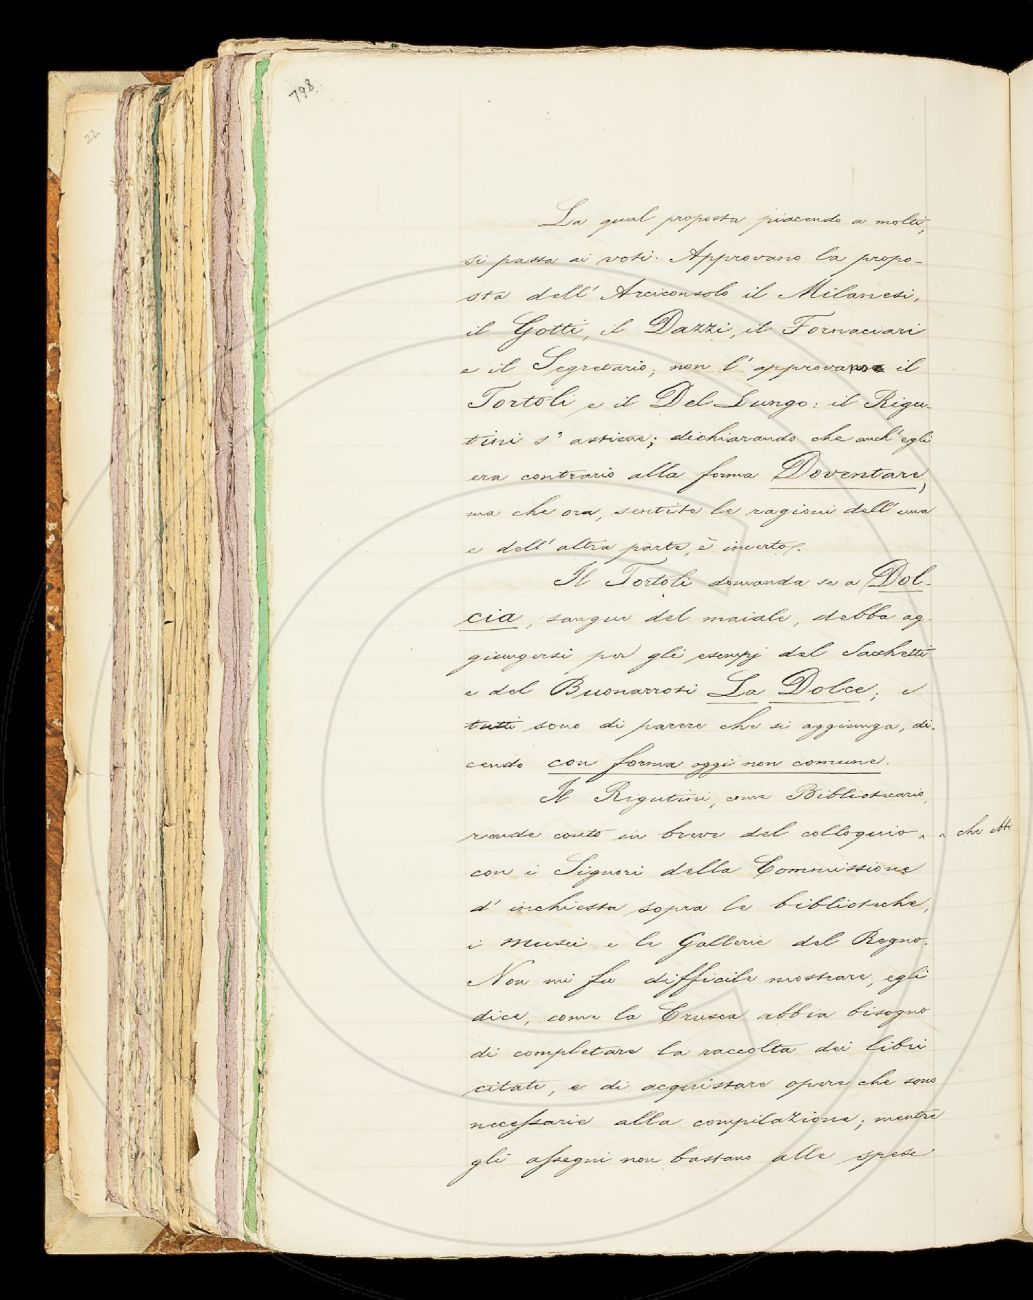 798
22
La qual proposta piacendo a molti,
si passa ai voti. Approvano la propo-
sta dell' Arciconsolo il Milanesi,
il Gotti, il Dazzi, il Fornaciari
e il Segretario; non l' approvano il
Tortoli e il Del Lungo: il Rigu-
tini s' astiene; dichiarando che anch' egli
era contrario alla forma Doventare,
ma che ora, sentite le ragioni dell' una
e dell' altra parte, è incerto.
Il Tortoli domanda se a Dol-
cia, sangue del maiale, debba ag-
giungersi per gli esempj del Sacchetti
e del Buonarroti La Dolce; e
tutti sono di parere che si aggiunga, di-
cendo con forma oggi non comune.
Il Rigutini, come Bibliotecario,
rende conto in breve del colloquio ^ ^ che ebbe
con i Signori della Commissione
d' inchiesta sopra le biblioteche,
i musei e le Gallerie del Regno.
Non mi fu difficile mostrare, egli
dice, come la Crusca abbia bisogno
di completare la raccolta dei libri
citati, e di acquistare opere che sono
necessarie alla compilazione; mentre
gli assegni non bastano alle spese